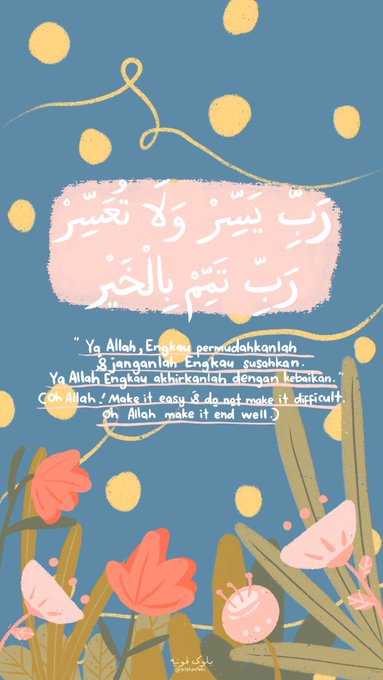 رَبِّ يَسِّرْ وَلَا تُعَسِّرْ
رَبِّ تَمِّمْ بِالْخَيْر
" Ya Allah, Engkau permudahkanlah
& janganlah Engkau susahkan.
Ya Allah Engkau akhirkanlah dengan kebaikan."
(Oh Allah! Make it easy & do not make it difficult.
Oh Allah make it end well.)
بلوک ڤوتيه